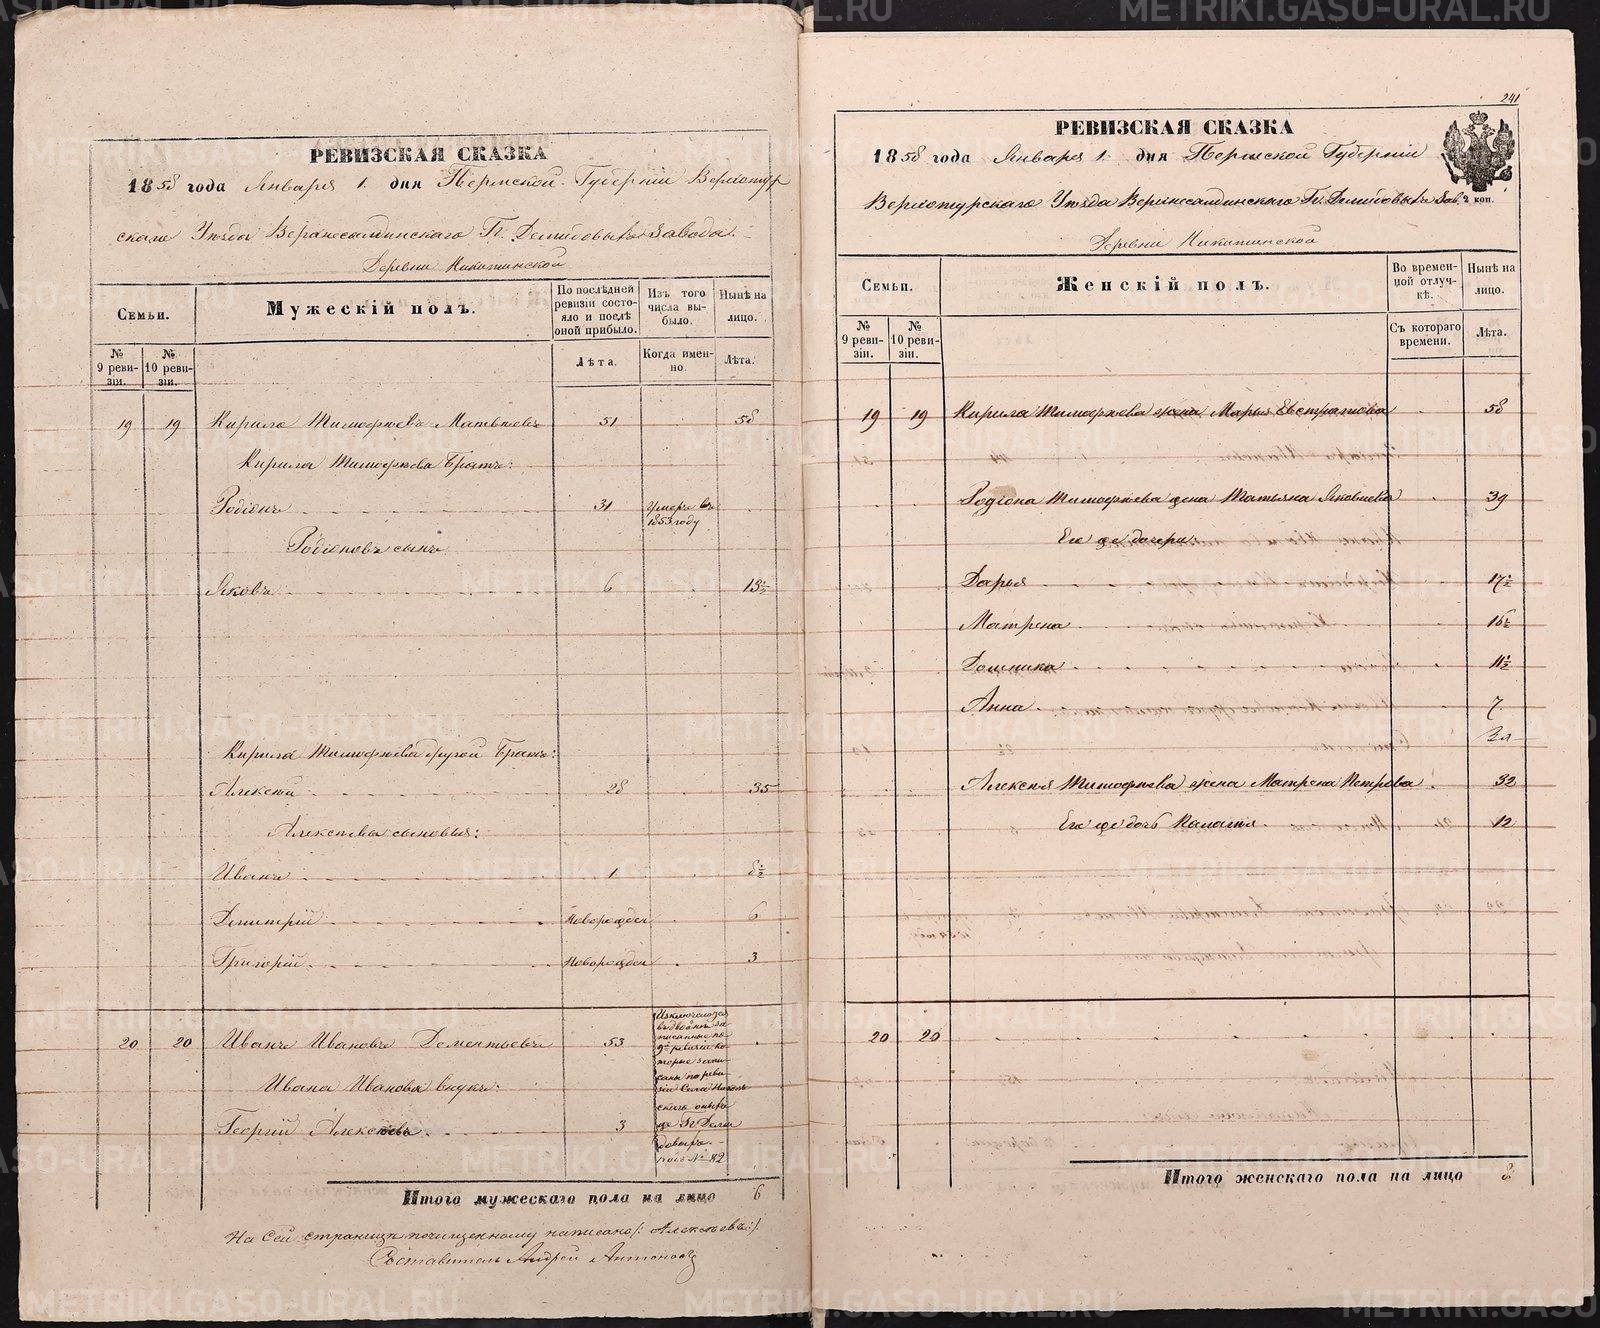 РЕВИЗСКАЯ СКАЗКА
1858 года Января 1. дня Пермской Губерніи Верхотур
скаго Уѣзда Верхнесалдинскаго Гг. Демидовыхъ Завода.
Деревни Никитинской
Семьи.
Мужескій полъ.
По послѣдней ревизіи состояло и послѣ оной прибыло.
Изъ того числа выбыло.
Нынѣ на лицо.
№ 9 ревизіи.
№ 10 ревизіи.
Лѣта.
Когда именно.
Лѣта.
19 19 Кирило Тимофѣевъ Матвѣевъ 51 58
Кирила Тимофѣева Братъ:
Родіонъ 31 Умеръ въ 1853 году
Родіоновъ сынъ
Яковъ 6 13½
Кирила Тимофѣева другой Братъ:
Алексѣй 28 35
Алексѣевы сыновья:
Иванъ 1 8½
Дмитрій Новорожден 6
Григорій Новорожден 3
20 20 Иванъ Ивановъ Дементьевъ 53
Ивана Иванова внукъ:
Георгій Алексѣевъ 3
Итого мужескаго пола на лицо 6
На сей страницѣ почищенному написано /: Алексѣевъ :/
Составитель Андрей Антоновъ
241
РЕВИЗСКАЯ СКАЗКА
1858 года Января 1. дня Пермской Губерніи
Верхотурскаго Уѣзда Верхнесалдинскаго Гг. Демидовыхъ Зав.
2 коп.
Деревни Никитинской
Семьи.
Женскій полъ.
Во временной отлучкѣ.
Нынѣ на лицо.
№ 9 ревизіи.
№ 10 ревизіи.
Съ котораго времени.
Лѣта.
19 19 Кирила Тимофѣева жена Марья Евстратова 58
Родіона Тимофѣева жена Татьяна Яковлева 39
Его же дочери:
Дарья 17½
Матрена 16½
Домника 11½
Анна 7
Алексѣя Тимофѣева жена Матрена Петрова 32
Его же дочь 12
20 20
Итого женскаго пола на лицо 8
METRIKI.GASO-URAL.RU